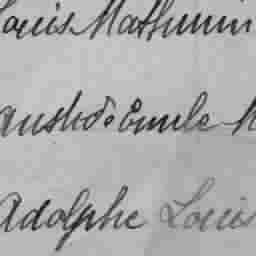 Louis Mathurin
Aristide Emile
Adolphe Louis